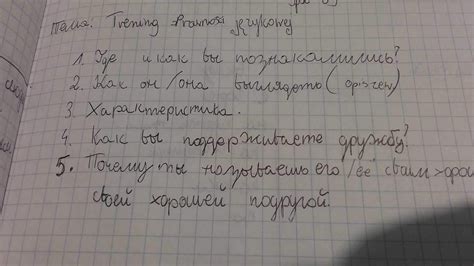 Тема: Trening Prawnosi Językowej
1. Где и как вы познакомились?
2. Как он/она выглядета (opis zew)
3. Характеристика.
4. Как вы поддерживаете дружбу?
5. Почему ты называешь его/её своим хоро
своей хорошей подругой.